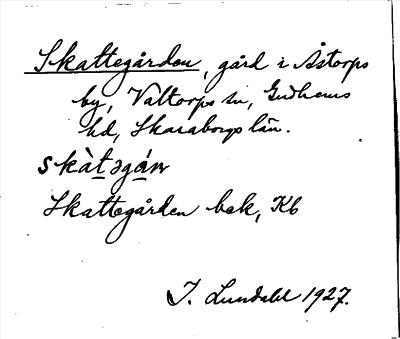 Skattegården, gård i Åstorps
by, Valtorps sn, Gudhems
hd, Skaraborgs län.
skàtəgáɳ
Skattegården bek, Kb
I. Lundahl 1927.